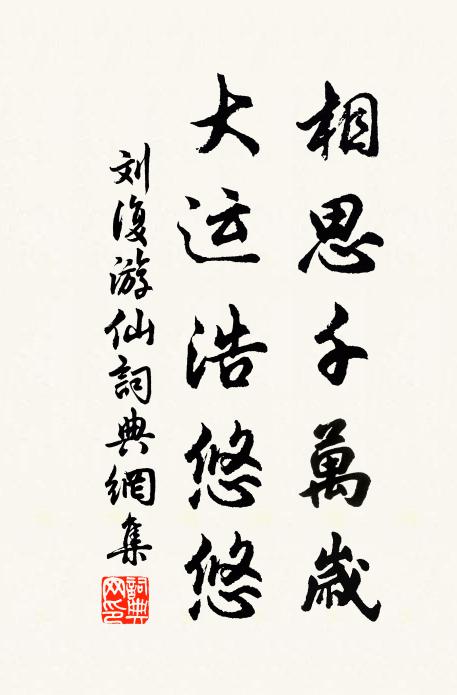 相思千萬歲
大运浩悠悠
刘復游仙詞典網集
詞典
网印